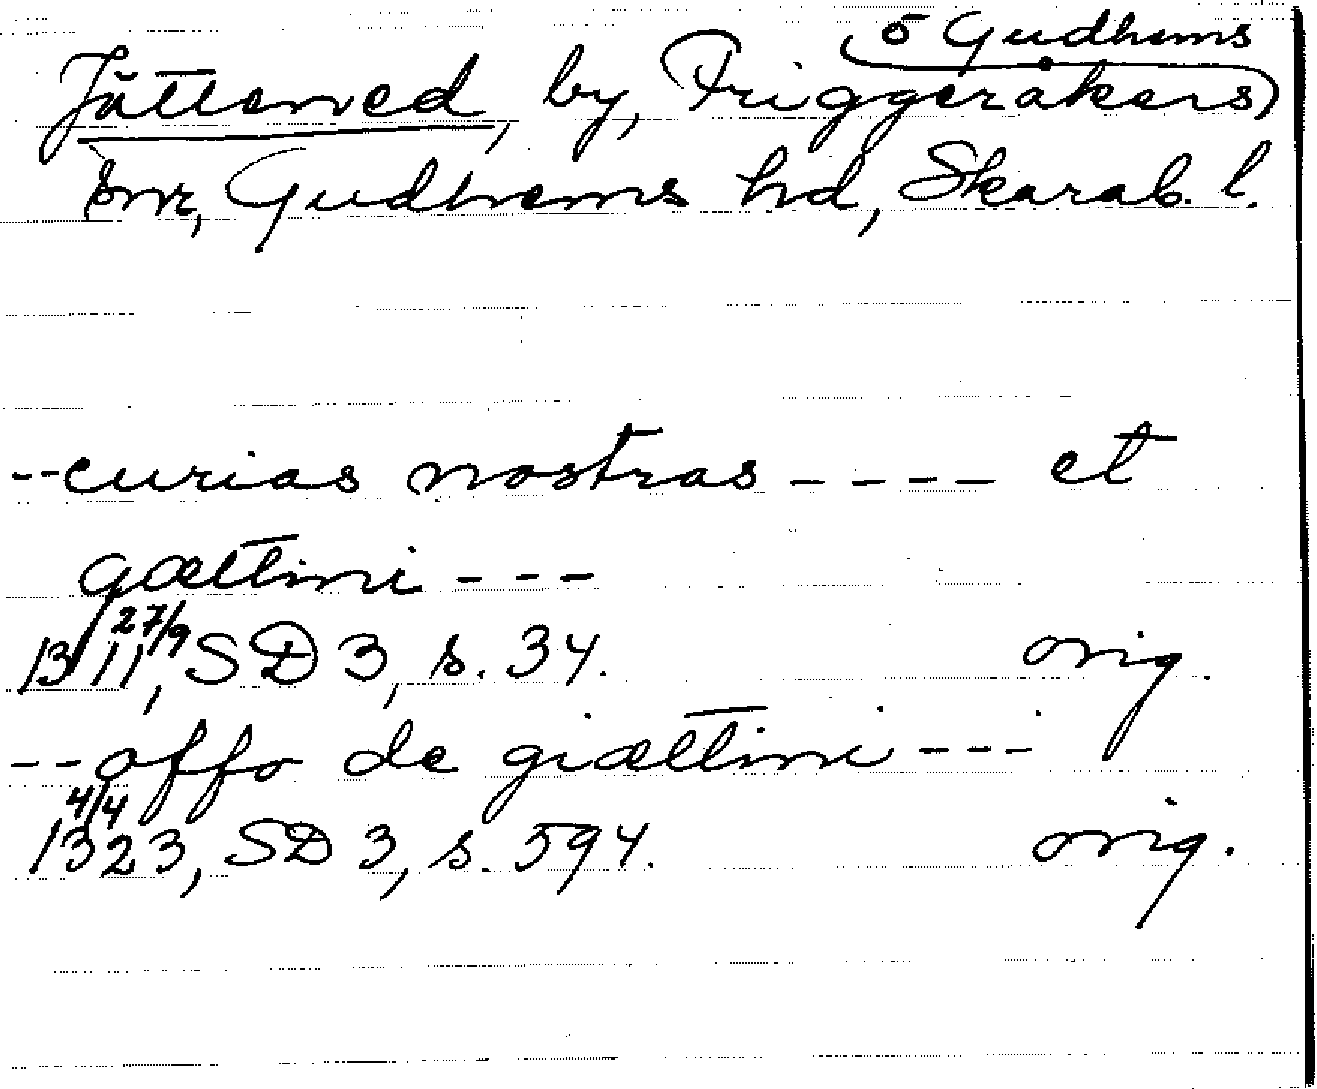 ō Gudhems
Jättened, by, Friggeråkers)
snr, Gudhems hd, Skarab. l.
--curias nostras ---- et
gættini ---
27/9
1311, SD 3, s. 34. orig.
--offo de giættini ---
4/4
1323, SD 3, s. 594. orig.